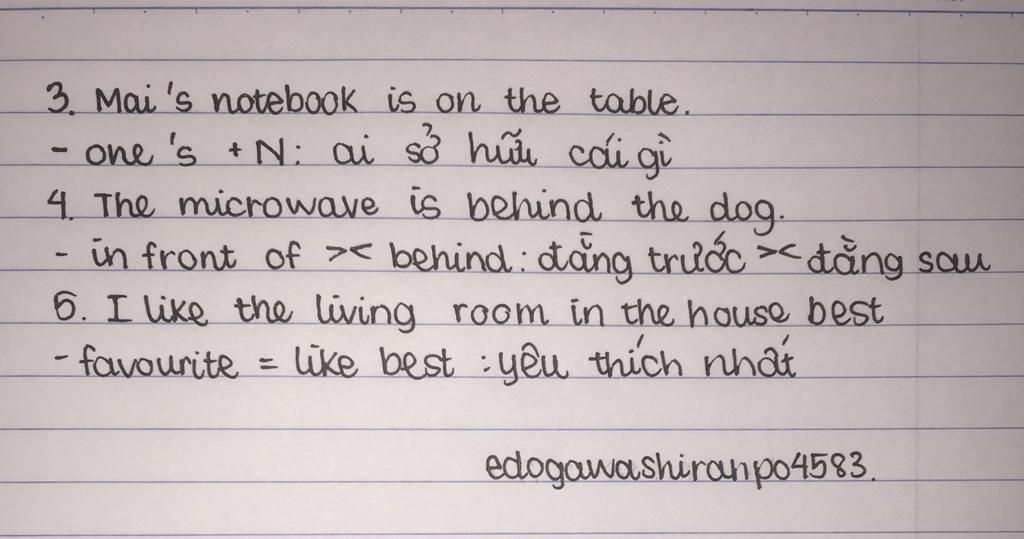 3. Mai's notebook is on the table.
- one's + N: ai sở hữu cái gì
4. The microwave is behind the dog.
- in front of >< behind: đằng trước >< đằng sau
5. I like the living room in the house best
- favourite = like best : yêu thích nhất
edogawashiranpo4583.